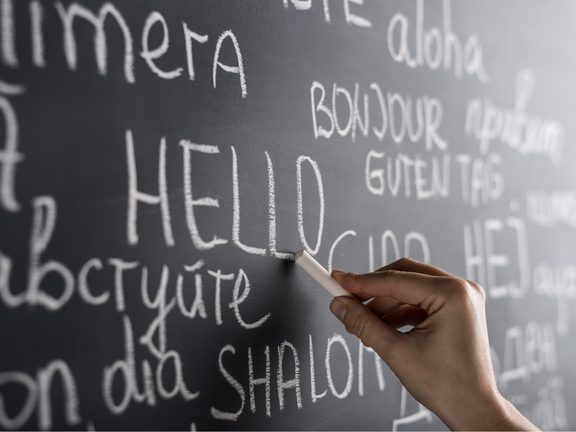 aloha
limerA
BONJOUR привет
GUTEN TAG
HELLO
HEJ
вствуйте
on dia
SHALOM